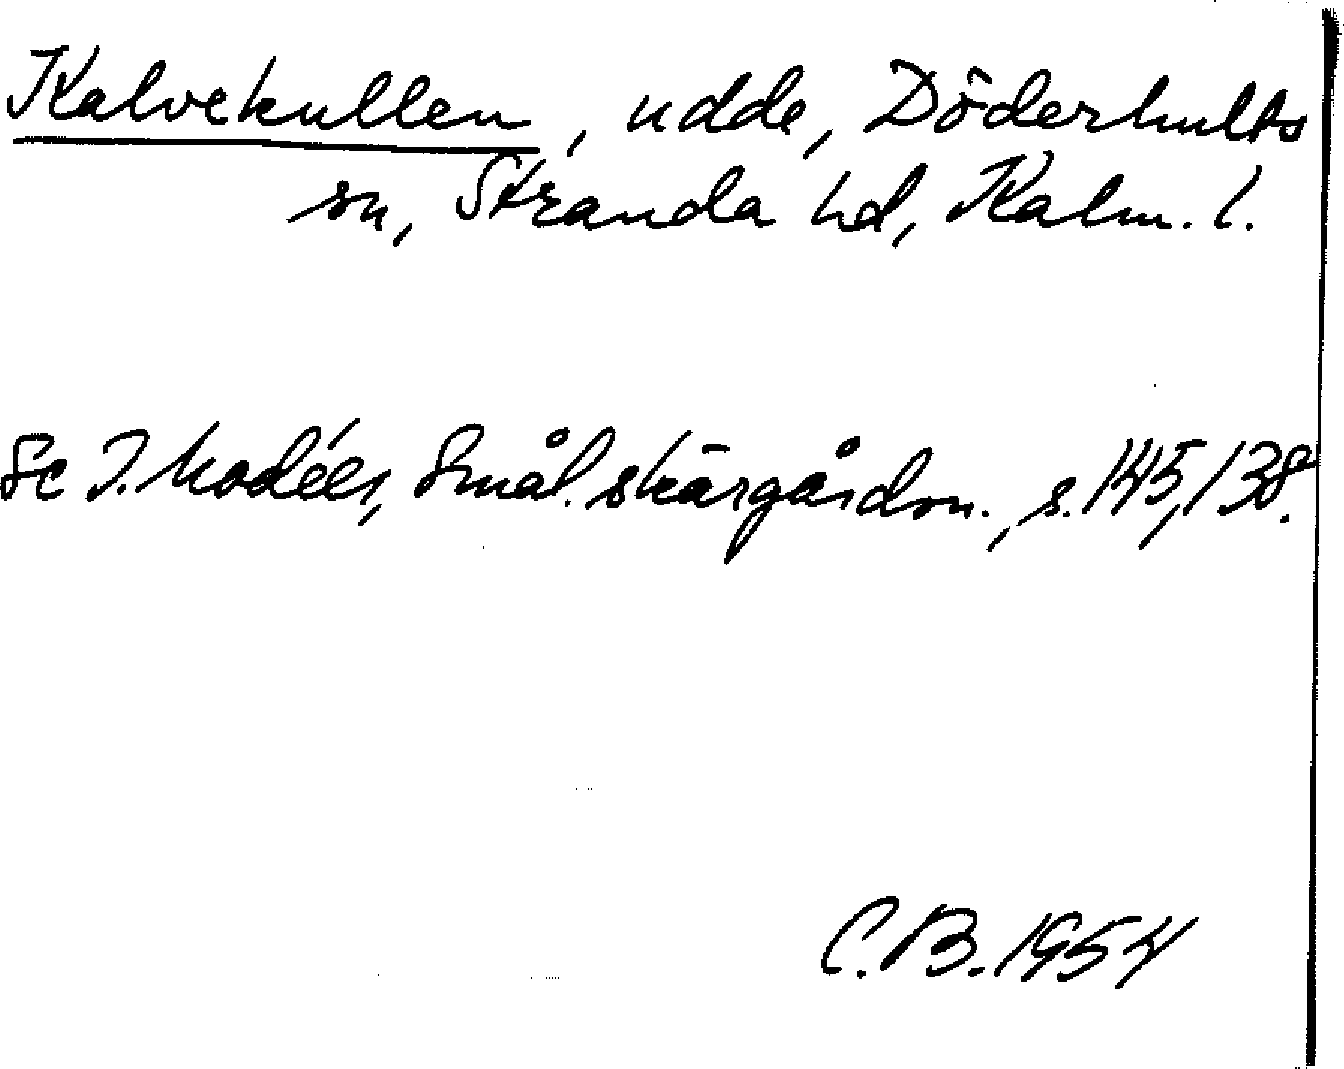 Kalvekullen, udde, Döderhults
sn, Stranda hd, Kalm. l.
Se I. Modéer, Smål. skärgårdsn., s. 145, 138.
C.B. 1954